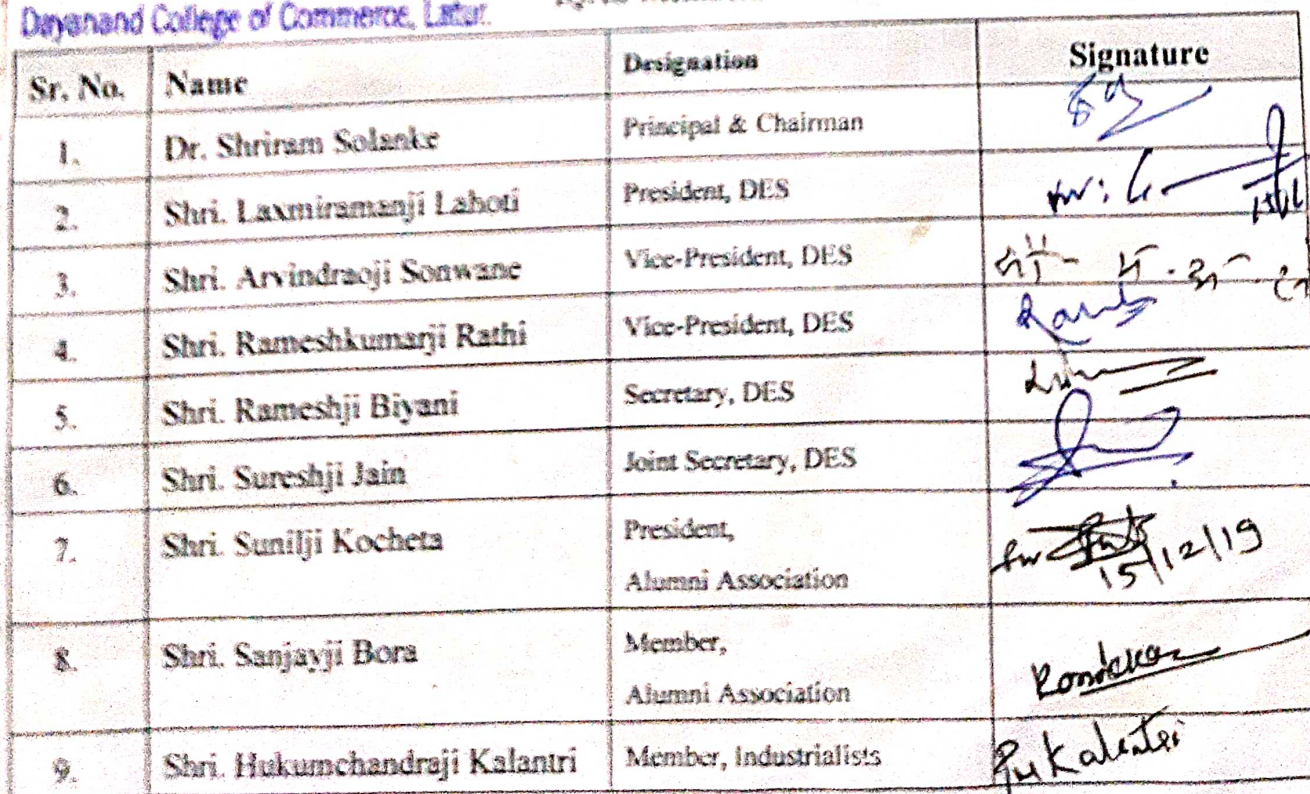 Dayanand College of Commerce, Latur.
Sr. No. Name Designation Signature
1. Dr. Shriram Solanke Principal & Chairman
2. Shri. Laxmiramanji Lahoti President, DES
3. Shri. Arvindraoji Sonwane Vice-President, DES
4. Shri. Rameshkumarji Rathi Vice-President, DES
5. Shri. Rameshji Biyani Secretary, DES
6. Shri. Sureshji Jain Joint Secretary, DES
7. Shri. Sunilji Kocheta President,
Alumni Association 15/12/19
8. Shri. Sanjayji Bora Member,
Alumni Association
9. Shri. Hukumchandraji Kalantri Member, Industrialists Kalantri